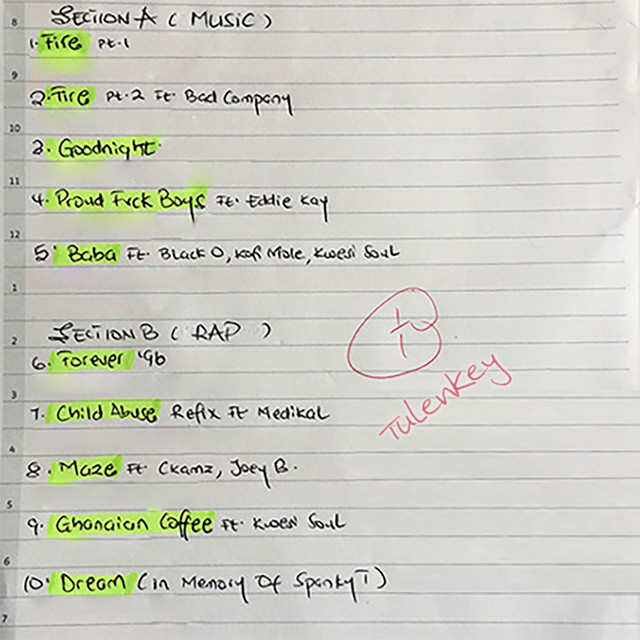 8
SECTION A ( MUSIC )
1. Fire Pt.1
9
2. Fire Pt.2 Ft. Bad Company
10
3. Goodnight
11
4. Proud Fvck Boys Ft. Eddie Kay
12
5. Baba Ft. Black O, Kofi Mole, Kwesi Soul
1
2
SECTION B ( RAP )
6. Forever '96
3
7. Child Abuse Refix Ft Medikal
4
8. Maze Ft Ckamz, Joey B.
5
9. Ghanaian Coffee Ft. Kwesi Soul
6
10. Dream (in Memory Of Spanky T)
7
1/1
Tulenkey